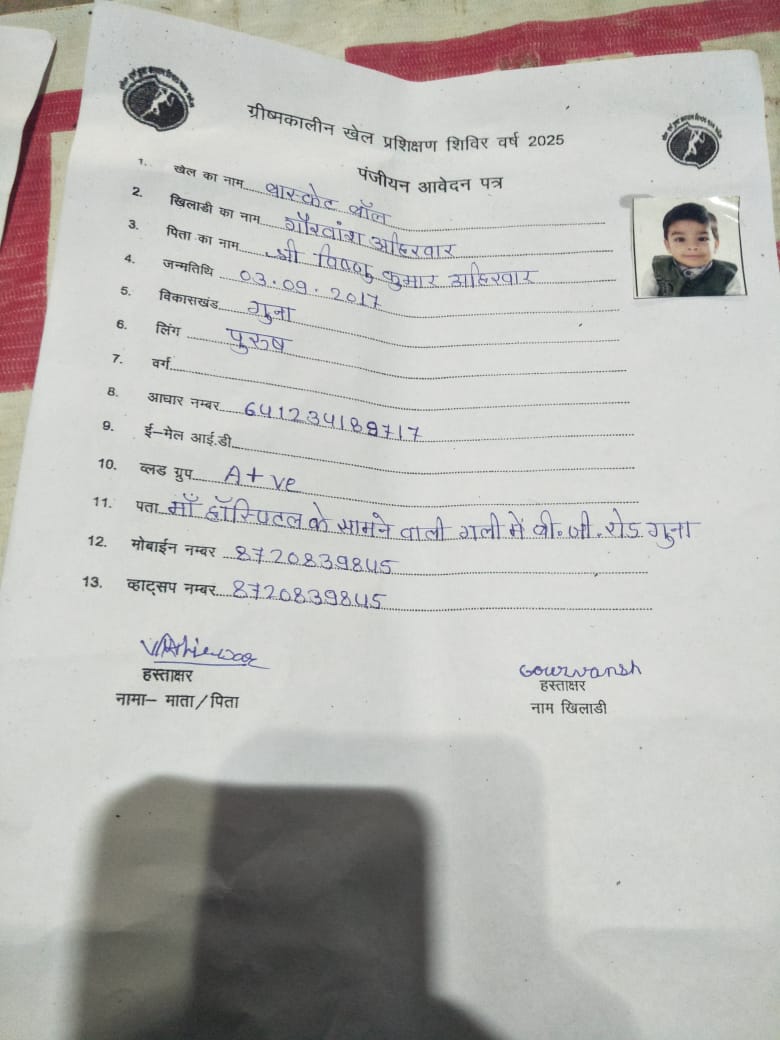 ग्रीष्मकालीन खेल प्रशिक्षण शिविर वर्ष 2025
पंजीयन आवेदन पत्र
1. खेल का नाम वास्केट वॉल
2. खिलाडी का नाम गौरवांश अहिरवार
3. पिता का नाम श्री विष्णु कुमार अहिरवार
4. जन्मतिथि 03.09.2017
5. विकासखंड गुना
6. लिंग पुरुष
7. वर्ग
8. आधार नम्बर 641234188717
9. ई–मेल आई.डी
10. व्लड ग्रुप A+ve
11. पता माँ हॉस्पिटल के सामने वाली गली में वी.जी.रोड गुना
12. मोबाईन नम्बर 8720839845
13. व्हाट्सप नम्बर 8720839845
VAhirwar
हस्ताक्षर
नामा– माता/पिता
Gourvansh
हस्ताक्षर
नाम खिलाडी